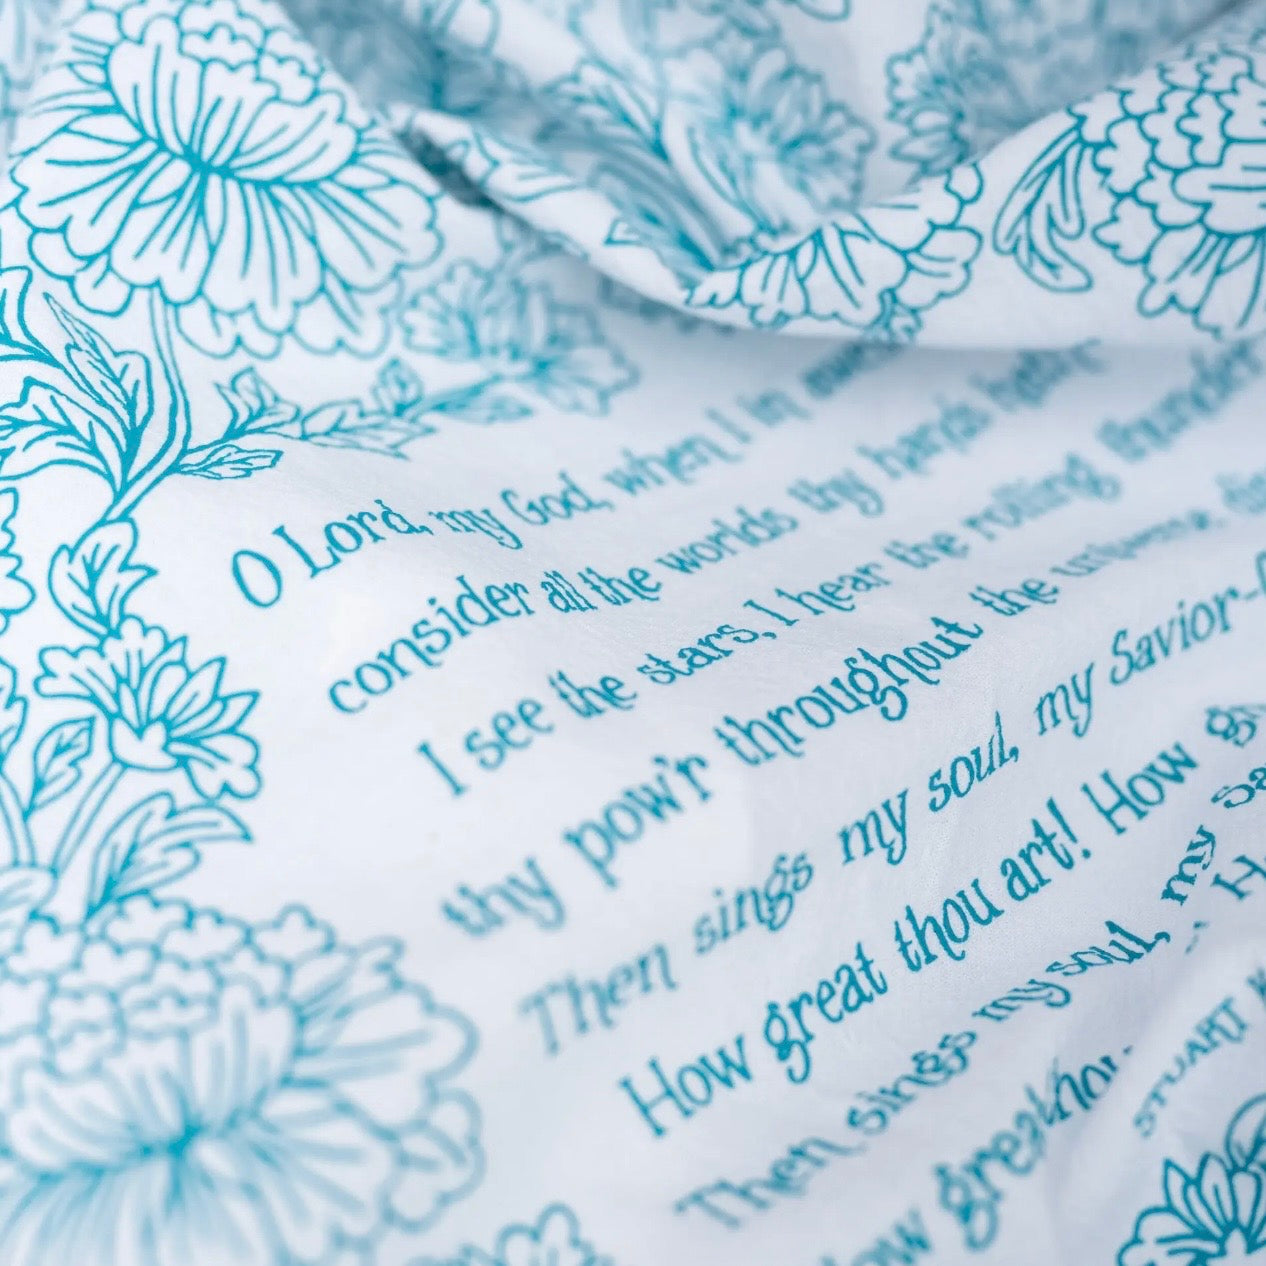 O Lord, my God, when I in
consider all the worlds thy hands have
I see the stars, I hear the rolling thunder
thy pow'r throughout the universe
Then sings my soul, my Savior-
How great thou art! How
Then sings my soul, my
How great thou
STUART